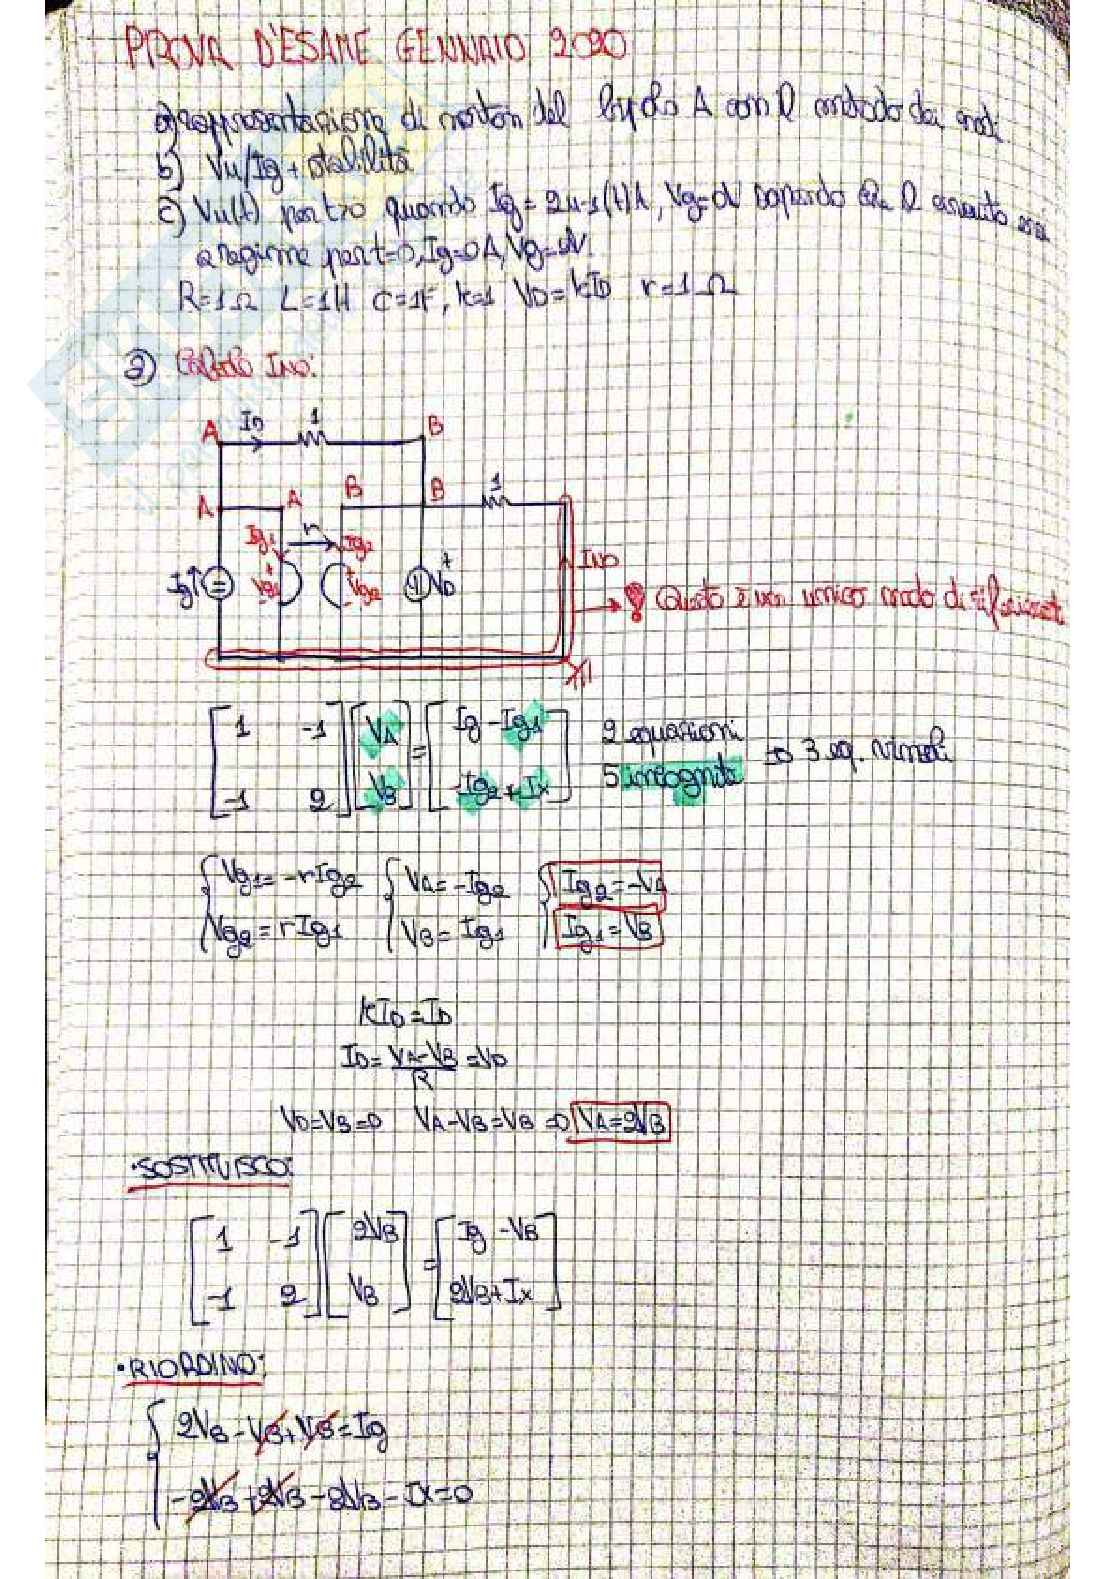 PROVA D'ESAME GENNAIO 2020
a) rappresentazione di norton del bipolo A con il metodo dei nodi.
b) Vu/Ig + stabilità
c) Vu(t) per t>0 quando Ig = 2u-1(t)A, Vg=0V sapendo che il circuito era
a regime per t=0, Ig=0A, Vg=0V.
R=1Ω L=1H C=1F, k=1 VD=kID r=1Ω
a) Calcolo INO:
ID 1
A B
A A B B 1
Ig1 r Ig2
Ig Vg1 Vg2 VD INO
Questo è un unico nodo di riferiment.
[1 -1; -1 2] [VA; VB] = [Ig - Ig1; -Ig2 + Ix] 2 equazioni 5 incognite => 3 eq. vincoli
{Vg1 = -rIg2 {VA = -Ig2 {Ig2 = -VA
{Vg2 = rIg1 {VB = Ig1 {Ig1 = VB
kID = ID
ID = VA-VB/R = VD
VD = VB => VA-VB = VB => VA = 2VB
• SOSTITUISCO:
[1 -1; -1 2] [2VB; VB] = [Ig - VB; 2VB + Ix]
• RIORDINO:
{2VB - VB + VB = Ig
{-2VB + 2VB - 2VB - Ix = 0